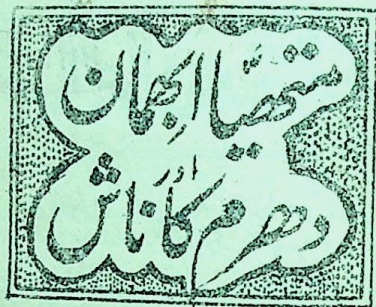 متھیا ابھمان
اور
دھرم کا ناش